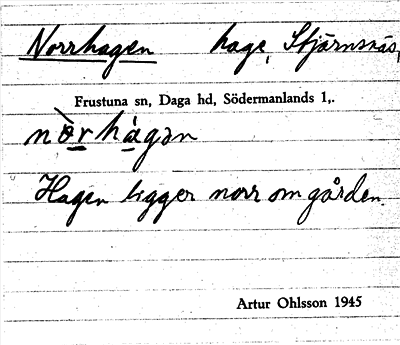 Norrhagen hage, Stjärnsnäs,
Frustuna sn, Daga hd, Södermanlands l,.
nòrhàgən
Hagen ligger norr om gården.
Artur Ohlsson 1945